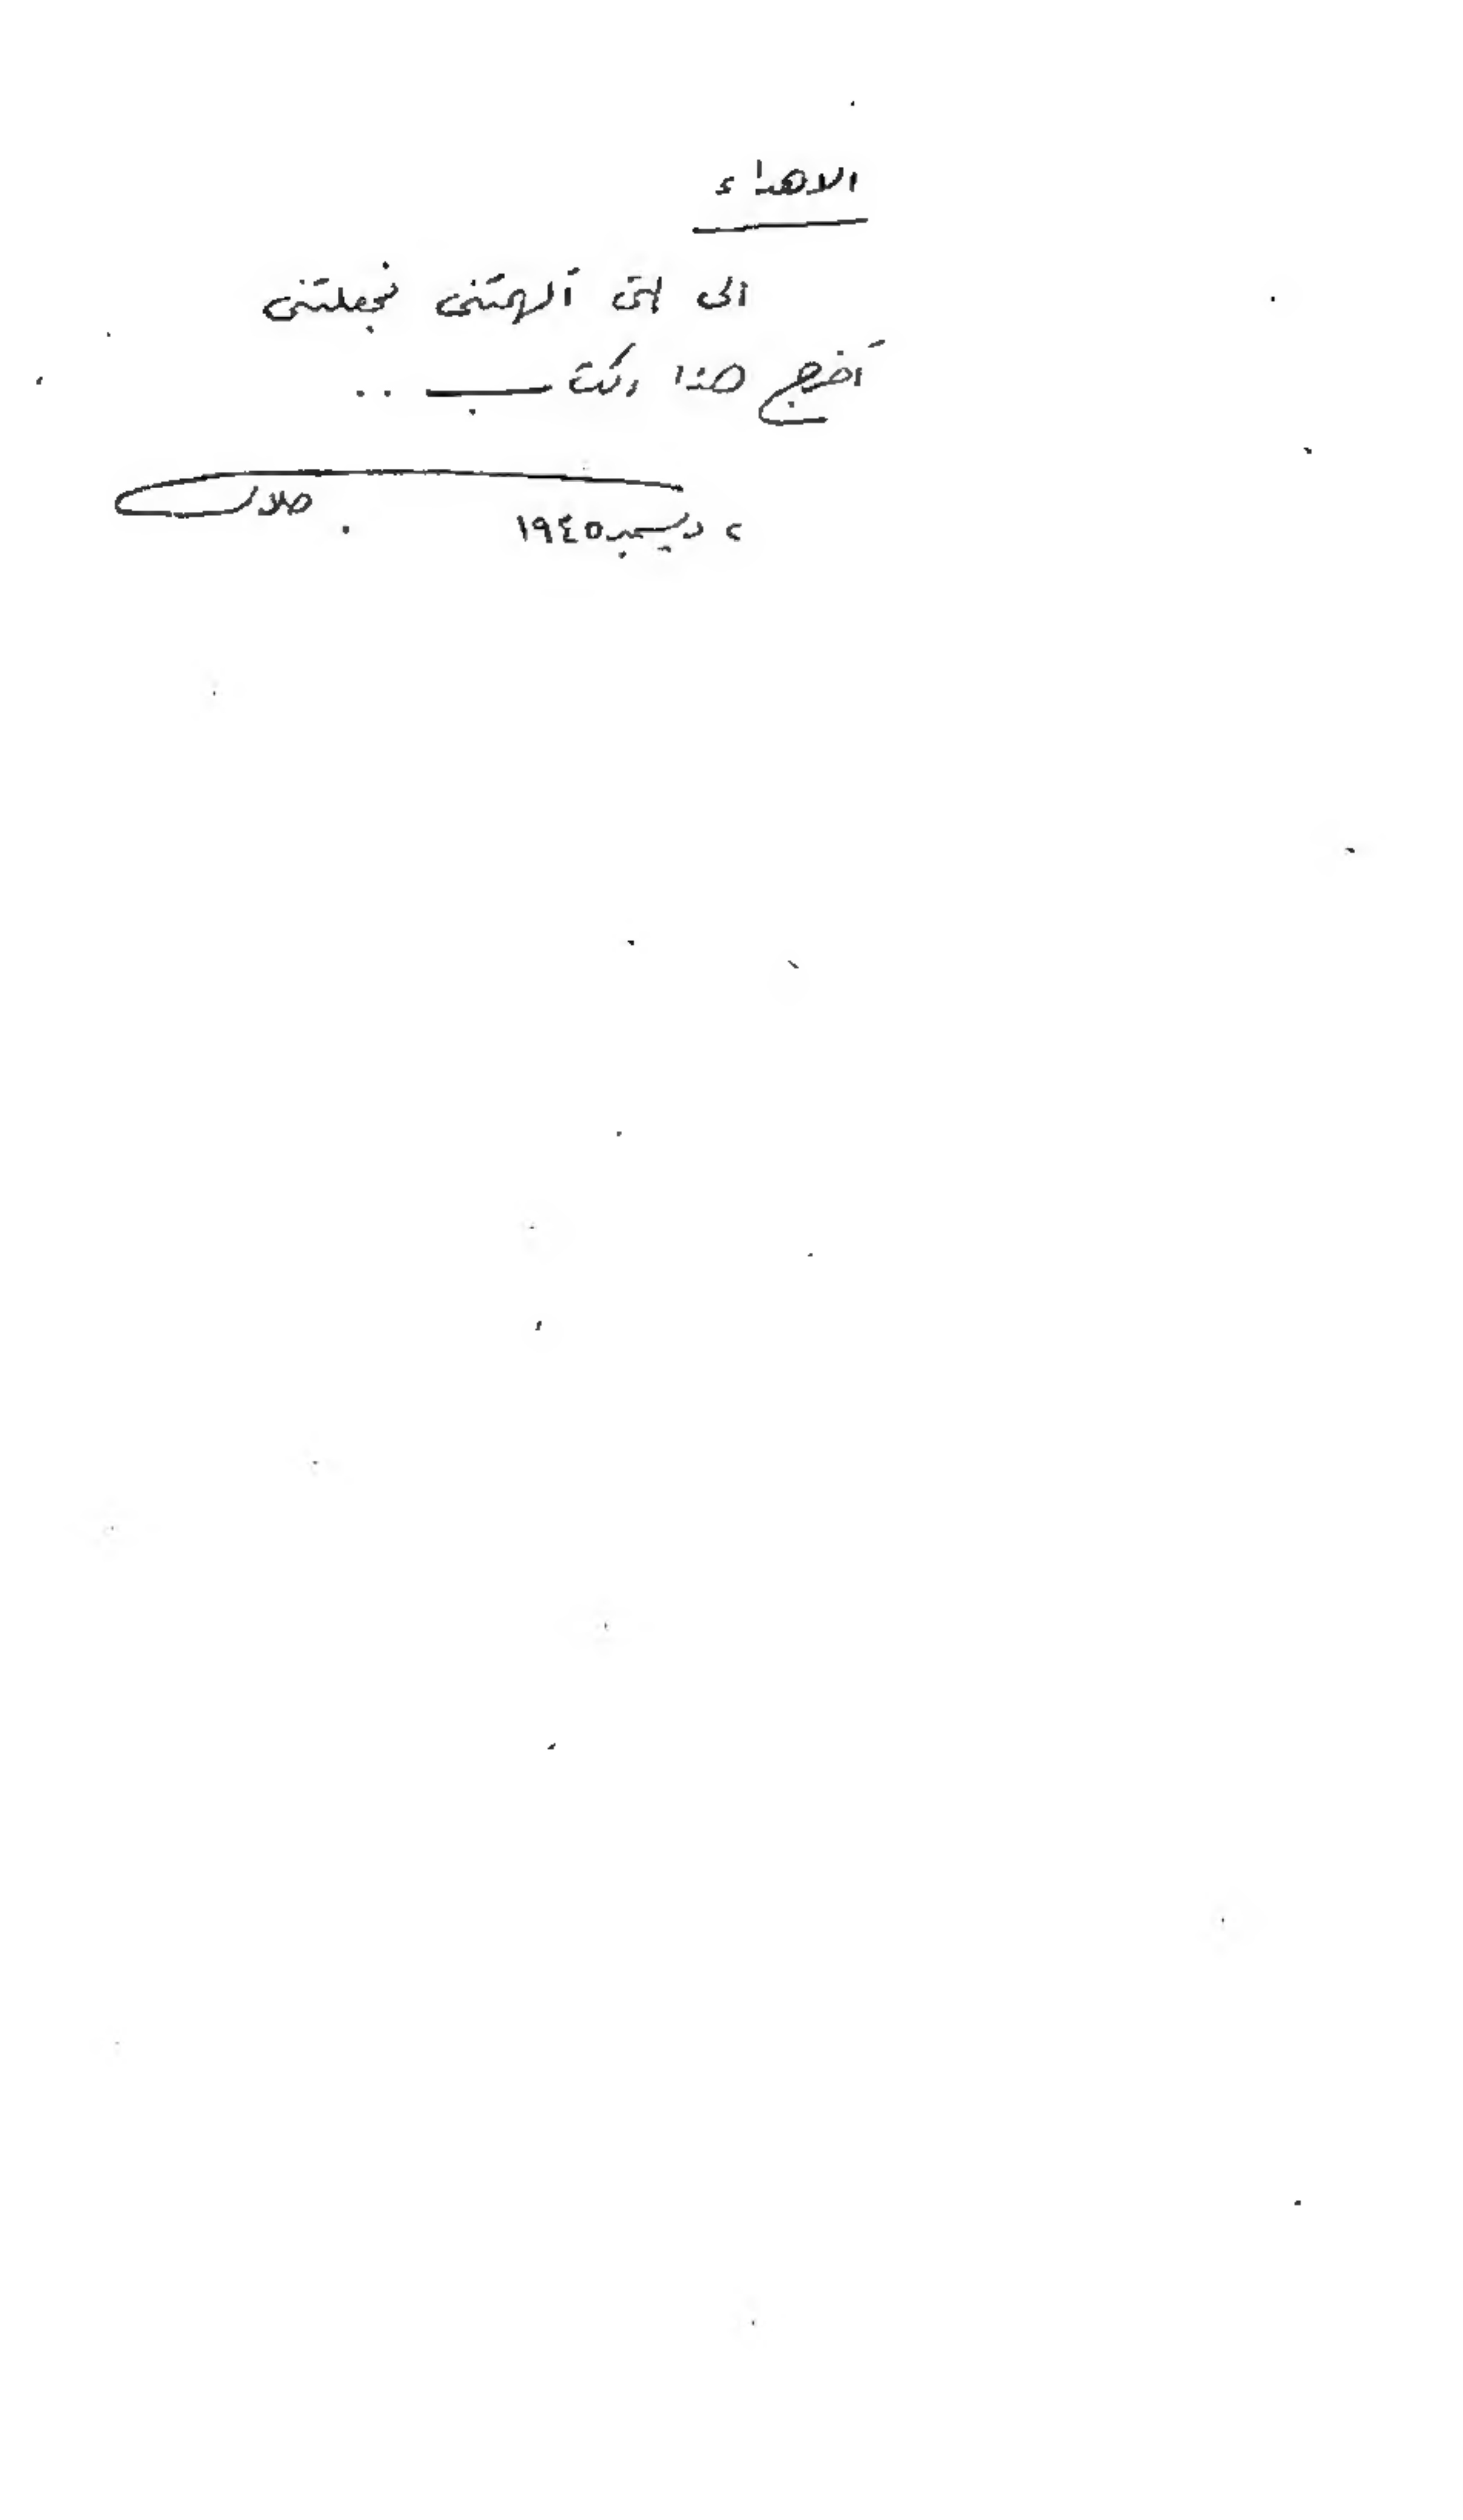 الاهداء
الى التى ألهمتنى فجعلتنى
أخرج هذا الكتاب ..
ديسمبر ١٩٤٥